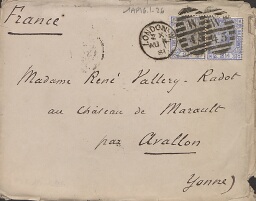 France
LONDON
81
Madame René Vallery-Radot
au Château de Marault
par Avallon
Yonne)